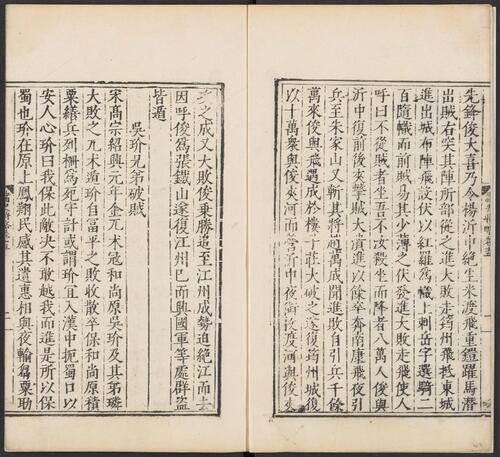 先鋒俊大喜乃令楊沂中絶生米渡飛重鎧躍馬潛
出賊右突其陣所部從之進大敗走筠州飛抵東城
進出城布陣飛設伏以紅羅爲幟上刺岳字選騎二
百隨幟而前賊易其少薄之伏發進大敗走飛使人
呼曰不從賊者坐吾不汝殺坐而降者八萬人俊與
沂中復前後夾擊賊大潰進以餘卒奔南康飛夜引
兵至朱家山又斬其將趙萬成聞進敗自引兵十餘
萬來俊與飛遇成於樓子莊大破之遂復筠州城復
以十萬衆與俊夾河而營沂中夜銜枚度河與俊夾
之成又大敗俊乘勝追至江州成勢迫絶江而去
因呼俊爲張鐵山遂復江州已而興國軍等處群盜
皆遁
吳玠兄弟破賊
宋高宗紹興元年金兀朮冦和尚原吳玠及其弟璘
大敗之兀朮遁玠自富平之敗收散卒保和尚原積
粟繕兵列柵爲死守計或謂玠宜入漢中扼蜀口以
安人心玠曰我保此敵決不敢越我而進是所以保
蜀也玠在原上鳳翔民感其遺惠相與夜輸芻粟助